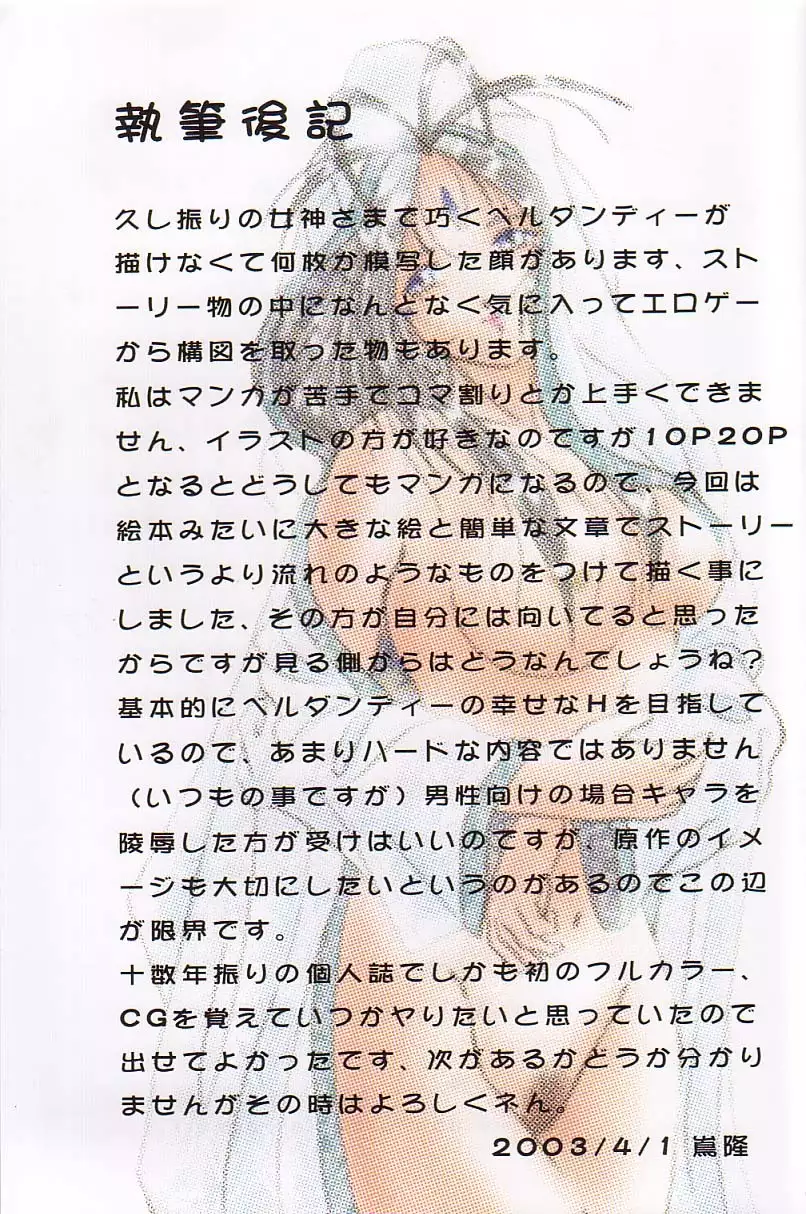 執筆後記
久し振りの女神さまで巧くベルダンディーが
描けなくて何枚か模写した顔があります、スト
ーリー物の中になんとなく気に入ってエロゲー
から構図を取った物もあります。
私はマンガが苦手でコマ割りとか上手くできま
せん、イラストの方が好きなのですが10P20P
となるとどうしてもマンガになるので、今回は
絵本みたいに大きな絵と簡単な文章でストーリー
というより流れのようなものをつけて描く事に
しました、その方が自分には向いてると思った
からですが見る側からはどうなんでしょうね?
基本的にベルダンディーの幸せなHを目指して
いるので、あまりハードな内容ではありません
(いつもの事ですが)男性向けの場合キャラを
陵辱した方が受けはいいのですが、原作のイメ
ージも大切にしたいというのがあるのでこの辺
が限界です。
十数年振りの個人誌でしかも初のフルカラー、
CGを覚えていつかヤりたいと思っていたので
出せてよかったです、次があるかどうか分かり
ませんがその時はよろしくネん。
2003/4/1 嶌隆